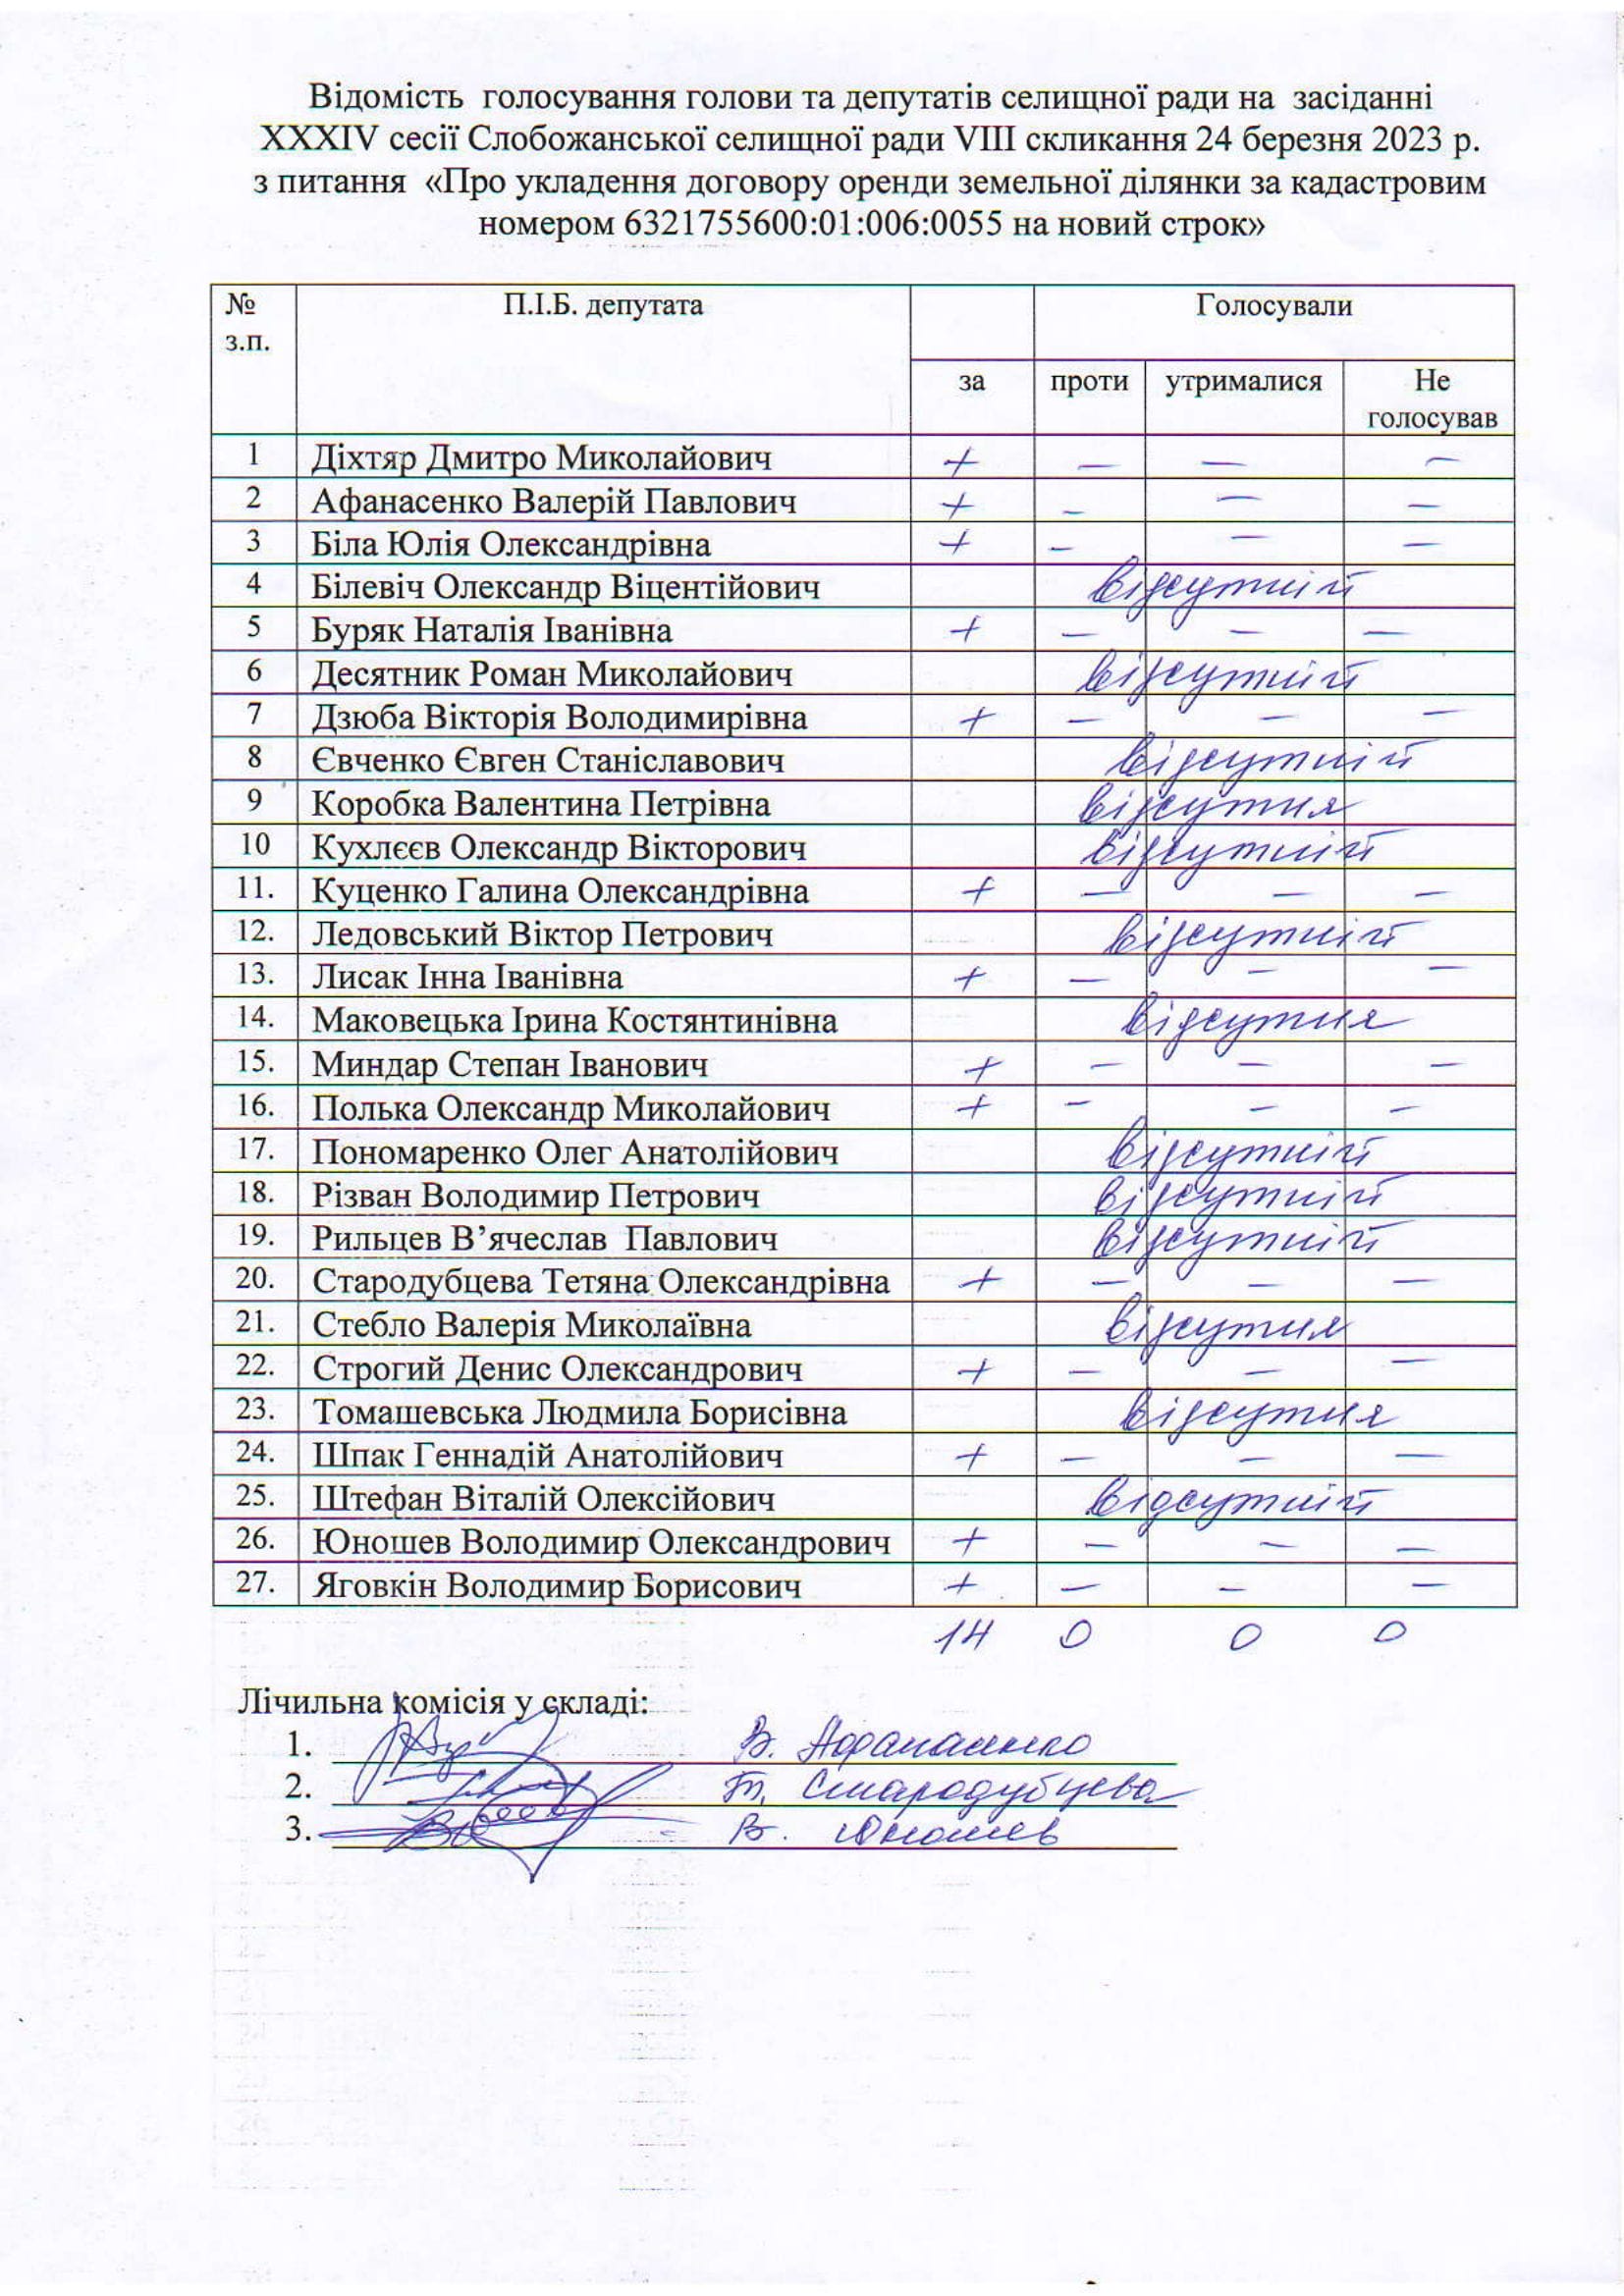 Відомість голосування голови та депутатів селищної ради на засіданні
XXXIV сесії Слобожанської селищної ради VIII скликання 24 березня 2023 р.
з питання «Про укладення договору оренди земельної ділянки за кадастровим
номером 6321755600:01:006:0055 на новий строк»
№ з.п. П.І.Б. депутата Голосували
за проти утрималися Не голосував
1 Діхтяр Дмитро Миколайович + — — —
2 Афанасенко Валерій Павлович + — — —
3 Біла Юлія Олександрівна + — — —
4 Білевіч Олександр Віцентійович відсутній
5 Буряк Наталія Іванівна + — — —
6 Десятник Роман Миколайович відсутній
7 Дзюба Вікторія Володимирівна + — — —
8 Євченко Євген Станіславович відсутній
9 Коробка Валентина Петрівна відсутня
10 Кухлєєв Олександр Вікторович відсутній
11. Куценко Галина Олександрівна + — — —
12. Ледовський Віктор Петрович відсутній
13. Лисак Інна Іванівна + — — —
14. Маковецька Ірина Костянтинівна відсутня
15. Миндар Степан Іванович + — — —
16. Полька Олександр Миколайович + — — —
17. Пономаренко Олег Анатолійович відсутній
18. Різван Володимир Петрович відсутній
19. Рильцев В’ячеслав Павлович відсутній
20. Стародубцева Тетяна Олександрівна + — — —
21. Стебло Валерія Миколаївна відсутня
22. Строгий Денис Олександрович + — — —
23. Томашевська Людмила Борисівна відсутня
24. Шпак Геннадій Анатолійович + — — —
25. Штефан Віталій Олексійович відсутній
26. Юношев Володимир Олександрович + — — —
27. Яговкін Володимир Борисович + — — —
14 0 0 0
Лічильна комісія у складі:
1. В. Афанасенко
2. Т. Стародубцева
3. В. Юношев